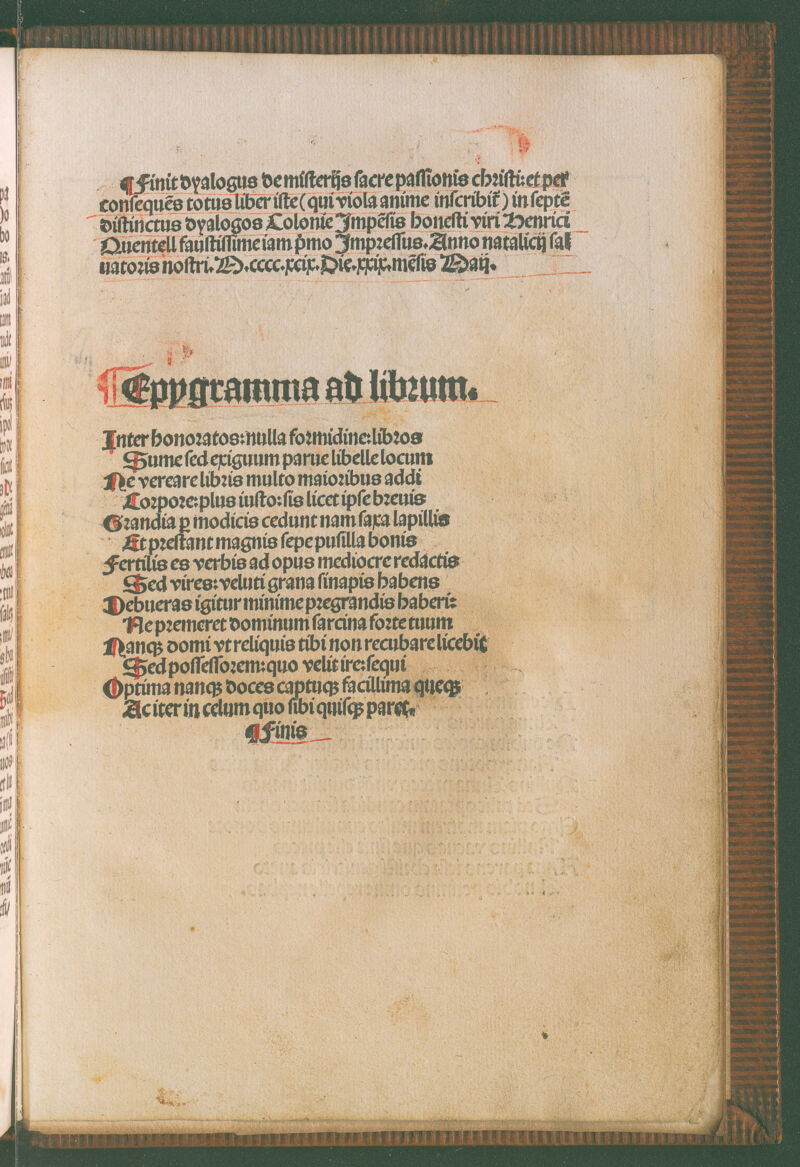 ¶ Finit dyalogus de misterijs sacre passionis christi: et per
consequēs totus liber iste (qui viola anime inscribit̄) in septē
distinctus dyalogos Colonie Impēsis honesti viri Henrici
Quentell faustissime iam p̄mo Impressus. Anno natalicij sal
uatoris nostri. M.cccc.xcix. Die.xxix. mēsis Maij.
¶ Epygramma ad librum.
Inter honoratos: nulla formidine: libros
Sume sed exiguum parue libelle locum
Ne vereare libris multo maioribus addi
Corpore: plus iusto: sis licet ipse breuis
Grandia ꝑ modicis cedunt nam saxa lapillis
Et prestant magnis sepe pusilla bonis
Fertilis es verbis ad opus mediocre redactis
Sed vires: veluti grana sinapis habens
Debueras igitur minime pregrandis haberi:
Ne premeret dominum sarcina forte tuum
Nanqꝫ domi vt reliquis tibi non recubare licebit
Sed possessorem: quo velit ire: sequi
Optima nanqꝫ doces captuqꝫ facillima queqꝫ
Ac iter in celum quo sibi quisqꝫ paret.
¶ Finis